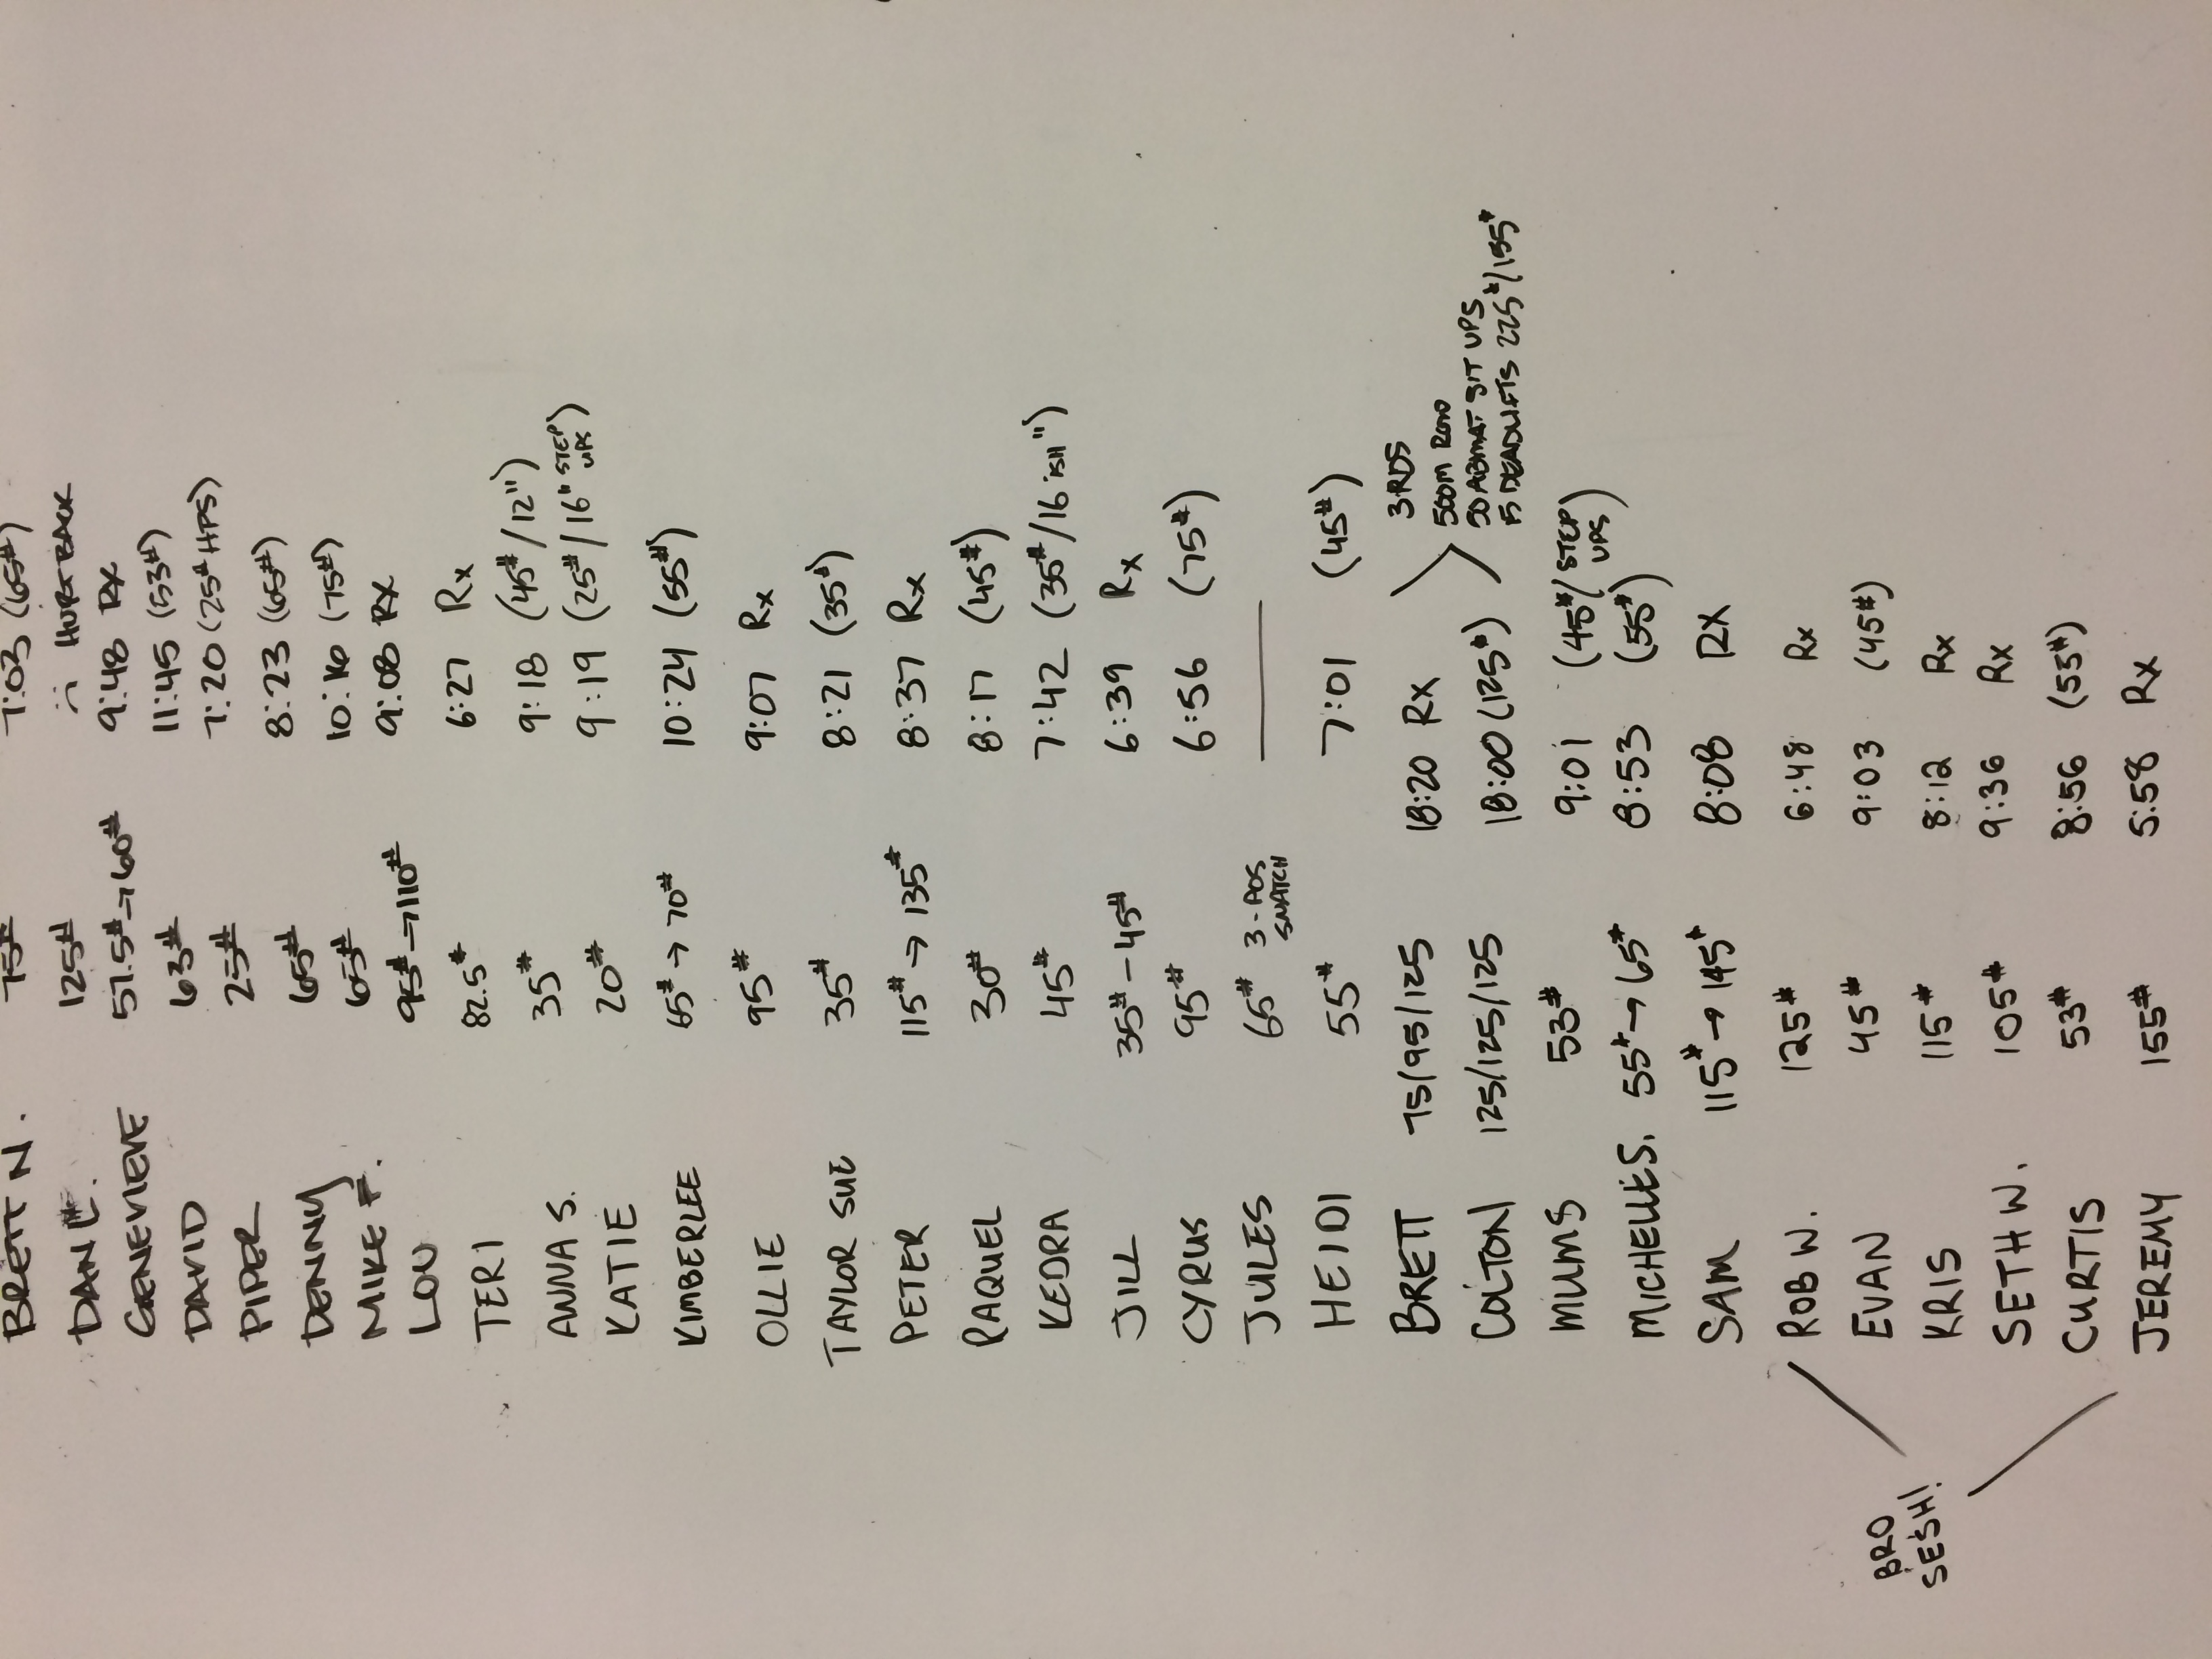 BRETT N. 75# 7:03 (65#)
DAN E. 125# :( HURT BACK
GENEVIEVE 57.5#→60# 9:48 Rx
DAVID 63# 11:45 (53#)
PIPER 25# 7:20 (25# HPS)
DENNY 65# 8:23 (65#)
MIKE F. 65# 10:16 (75#)
LOU 95#→110# 9:08 Rx
TERI 82.5# 6:27 Rx
ANNA S. 35# 9:18 (45#/12")
KATIE 20# 9:19 (25#/16" STEP UPS)
KIMBERLEE 65#→70# 10:24 (55#)
OLLIE 95# 9:07 Rx
TAYLOR SUE 35# 8:21 (35#)
PETER 115#→135# 8:37 Rx
RAQUEL 30# 8:17 (45#)
KEDRA 45# 7:42 (35#/16ISH")
JILL 35#-45# 6:39 Rx
CYRUS 95# 6:56 (75#)
JULES 65# 3-POS SNATCH
HEIDI 55# 7:01 (45#)
BRETT 75/95/125 18:20 Rx
COLTON 125/125/125 18:00 (125#)
3 RDS
500M ROW
30 ABMAT SIT UPS
15 DEADLIFTS 225#/155#
MUMS 53# 9:01 (45#/STEP UPS)
MICHELLE S. 55#→65# 8:53 (55#)
SAM 115#→145# 8:08 RX
ROB W. 125# 6:48 Rx
EVAN 45# 9:03 (45#)
KRIS 115# 8:12 Rx
SETH W. 105# 9:36 Rx
CURTIS 53# 8:56 (55#)
JEREMY 155# 5:58 Rx
BRO
SESH!